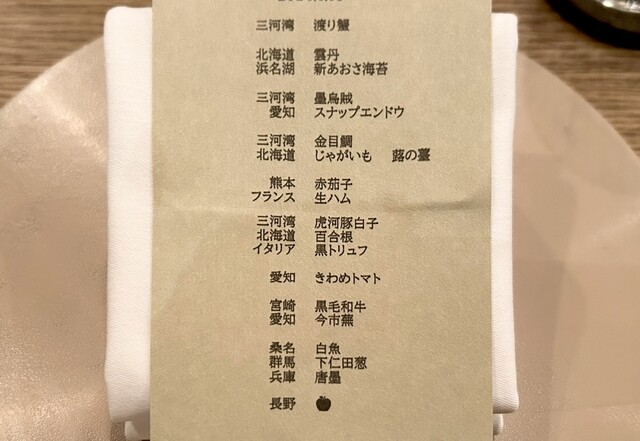 三河湾 渡り蟹
北海道 雲丹
浜名湖 新あおさ海苔
三河湾 墨烏賊
愛知 スナップエンドウ
三河湾 金目鯛
北海道 じゃがいも 蕗の薹
熊本 赤茄子
フランス 生ハム
三河湾 虎河豚白子
北海道 百合根
イタリア 黒トリュフ
愛知 きわめトマト
宮崎 黒毛和牛
愛知 今市蕪
桑名 白魚
群馬 下仁田葱
兵庫 唐墨
長野